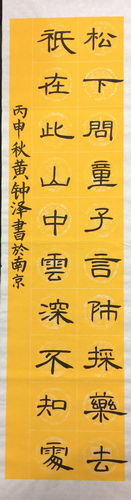 松下問童子言師採藥去
祇在此山中雲深不知處
丙申秋黄钟泽書於南京